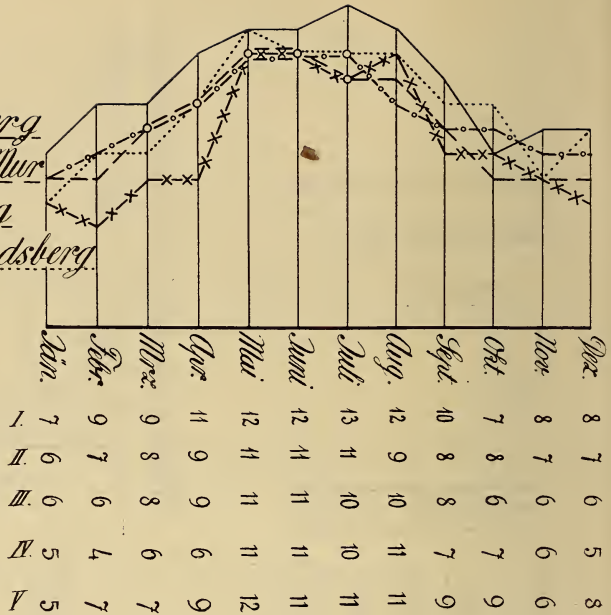 rg
Mur
g
dsberg
Jän. Febr. Mrz. Apr. Mai Juni Juli Aug. Sept. Okt. Nov. Dez.
I. 7 9 9 11 12 12 13 12 10 7 8 8
II. 6 7 8 9 11 11 11 9 8 8 7 7
III. 6 6 8 9 11 11 10 10 8 6 6 6
IV. 5 4 6 6 11 11 10 11 7 7 6 5
V 5 7 7 9 12 11 11 11 9 9 6 8